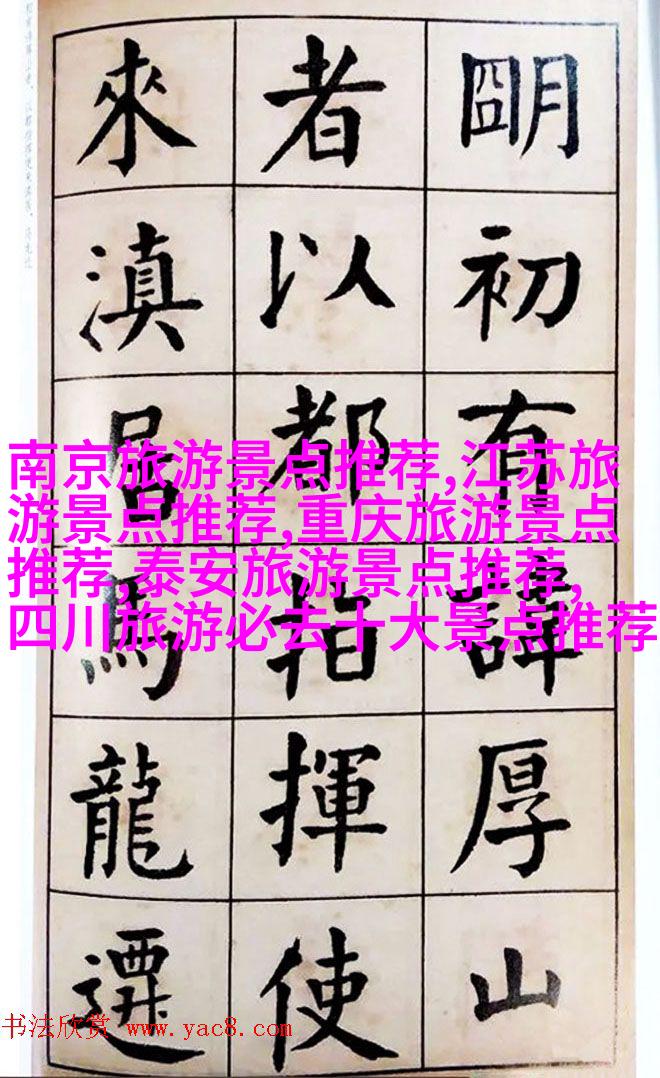 朙初有諱厚山
者以都指揮使
來滇居馬龍遷
南京旅游景点推荐,江苏旅
游景点推荐,重庆旅游景点
推荐,泰安旅游景点推荐,
四川旅游必去十大景点推荐
书法欣赏 www.yac8.com